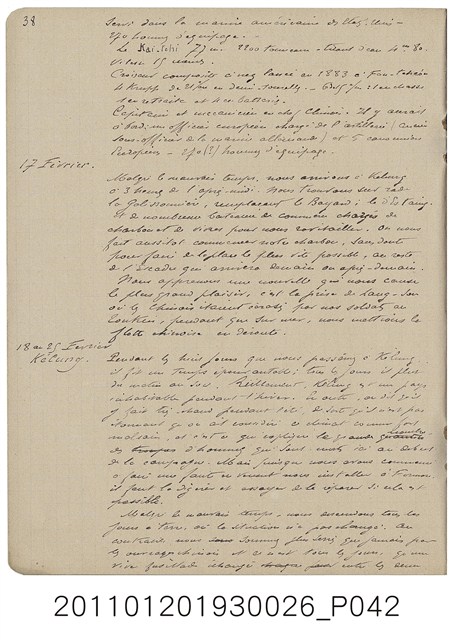 38
servi dans la marine américaine des Etats-Unis -
270 hommes d'équipage. -
Le Kai-Tchi 77 m. 2200 tonneaux - tirant d'eau 4m 80.
Vitesse 15 nœuds.
Croiseur composite à lancé en 1883 à Fou-Tchéou
4 Krupp de en demi-tourelle - en chasse
en retraite et 4 en batterie.
Capitaine et mécanicien en chef Chinois. Il y aurait
à bord un officier européen chargé de l'artillerie (ancien
sous-officier de la marine allemande) et 5 canonniers
Européens - 270 (?) hommes d'équipage.
17 Février.
Malgré le mauvais temps, nous arrivons à Kelung
à 3 heures de l'après-midi. Nous trouvons sur rade
la Galissonnière, remplaçant le Bayard; le d'Estaing
et de nombreux bateaux de commerce chargés de
charbon et de vivres pour nous ravitailler. On nous
fait aussitôt commencer notre charbon, sans doute
pour faire de la place le plus vite possible, au reste
de l'Escadre qui arrivera demain ou après-demain.
Nous apprenons une nouvelle qui nous cause
le plus grand plaisir, c'est la prise de Lang-Son
où les Chinois étaient écrasés par nos soldats au
Tonkin, pendant que sur mer, nous mettions la
flotte chinoise en déroute.
18 au 25 Février
Kélung.
Pendant les huit jours que nous passâmes à Kelung
il fit un temps épouvantable; tous les jours il plut
du matin au soir. Réellement, Kélung est un pays
inhabitable pendant l'hiver. En outre, on dit qu'il
y fait très chaud pendant l'été, de sorte qu'il n'est pas
étonnant qu'on ait considéré ce climat comme fort
malsain, et c'est ce qui explique le grand nombre
d'hommes qui sont morts ici au début
de la campagne. Mais puisque nous avons commencé
à faire une faute en venant nous installer à Formose
il faut la digérer et essayer de la réparer si cela est
possible.
Malgré le mauvais temps, nous descendions tous les
jours à terre, où la situation n'a pas changé. Au
contraire nous sommes plus serrés que jamais par
les ouvrages chinois et c'est tous les jours, qu'une
vive fusillade échangée entre les deux
201101201930026_P042